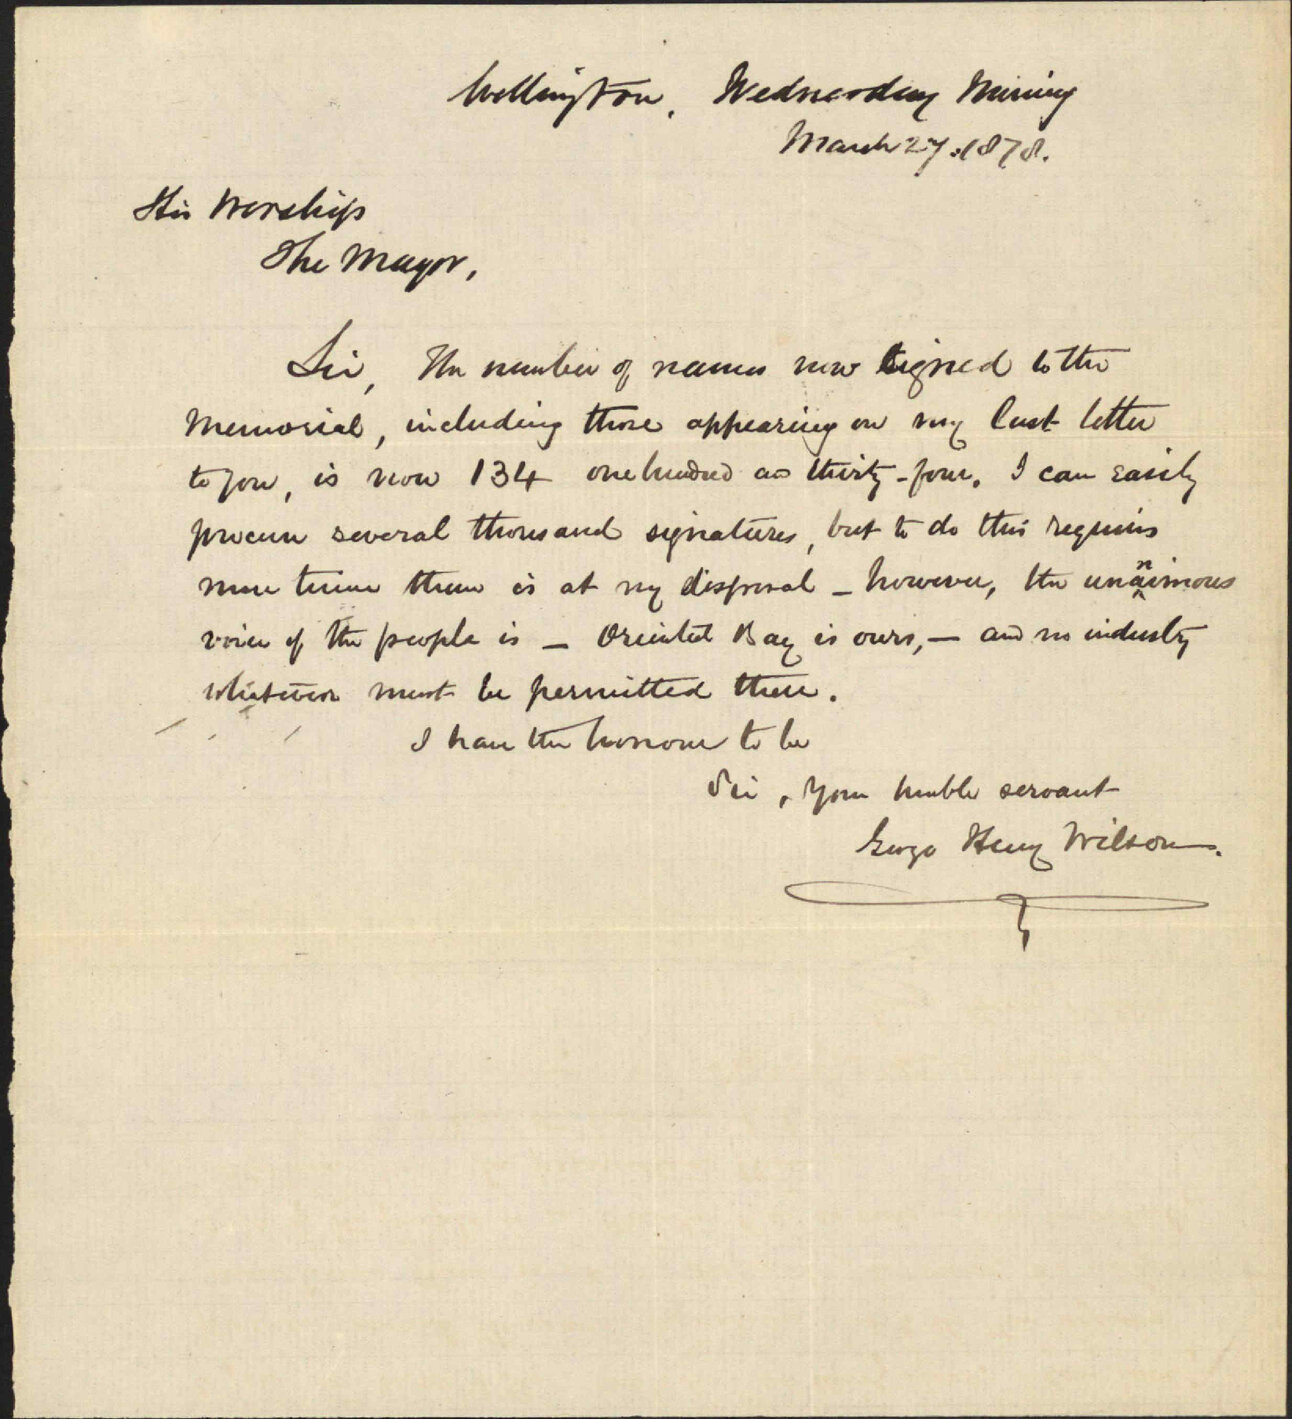 Wellington, Wednesday Morning
March 27. 1878.
His Worship
The Mayor,
Sir, The number of names now signed to the
Memorial, including those appearing on my last letter
to you, is now 134 one hundred and thirty-four. I can easily
procure several thousand signatures, but to do this requires
more time than is at my disposal – however, the unanimous
voice of the people is – Oriental Bay is ours, – and no industry
whatever must be permitted there.
I have the honour to be
Sir, Your humble servant
George Henry Wilson.